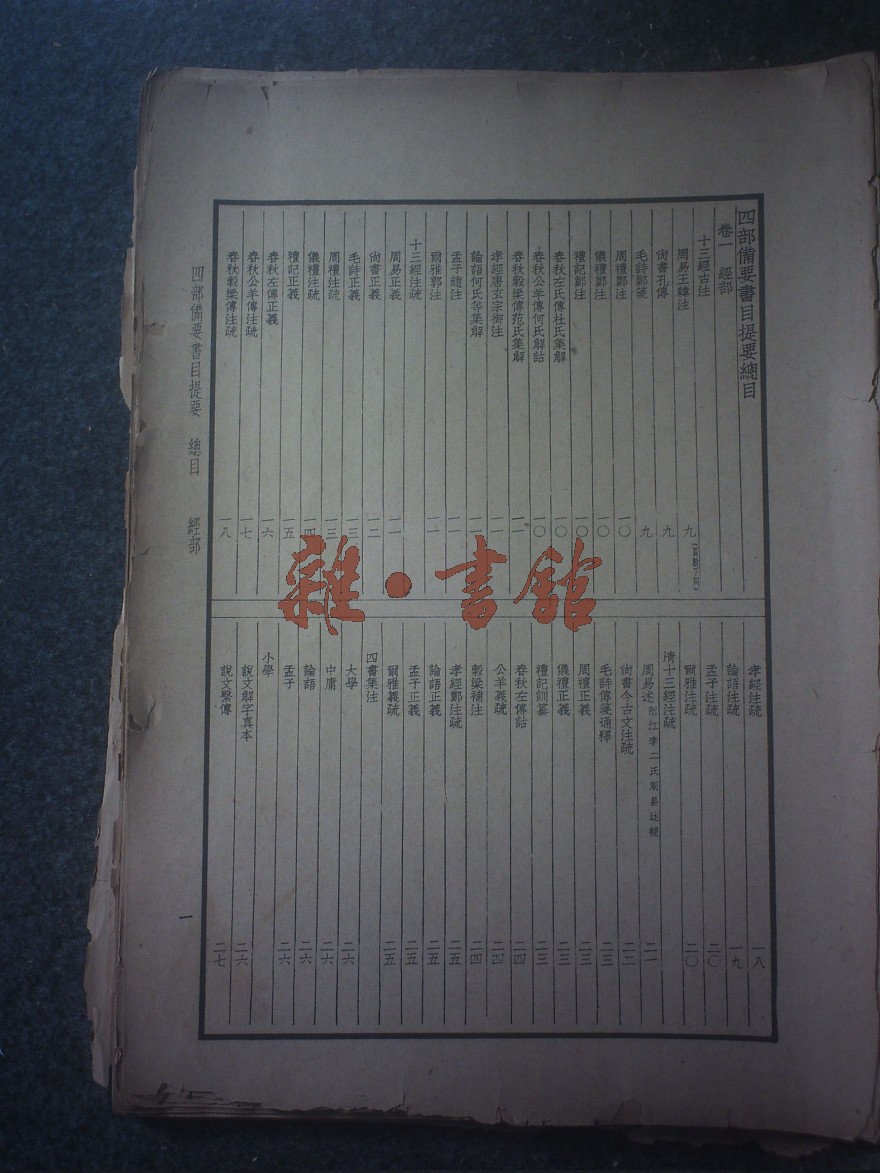 四部備要書目提要總目
卷一 經部
十三經古注
周易王韓注 九
尙書孔傳 九
毛詩鄭箋 九
周禮鄭注 一〇
儀禮鄭注 一〇
禮記鄭注 一〇
春秋左氏傳杜氏集解 一〇
春秋公羊傳何氏解詁 一〇
春秋穀梁傳范氏集解 一一
孝經唐玄宗御注 一一
論語何氏等集解 一一
孟子趙注 一一
爾雅郭注 一一
十三經注疏
周易正義 一一
尙書正義 一二
毛詩正義 一三
周禮注疏 一三
儀禮注疏 一四
禮記正義 一五
春秋左傳正義 一六
春秋公羊傳注疏 一七
春秋穀梁傳注疏 一八
孝經注疏 一八
論語注疏 一九
孟子注疏 二〇
爾雅注疏 二〇
清十三經注疏
周易述附江李二氏周易述補 二一
尙書今古文注疏 二二
毛詩傳箋通釋 二三
周禮正義 二三
儀禮正義 二三
禮記訓纂 二三
春秋左傳詁 二四
公羊義疏 二四
穀梁補注 二四
孝經鄭注疏 二五
論語正義 二五
孟子正義 二五
爾雅義疏 二五
四書集注
大學 二六
中庸 二六
論語 二六
孟子 二六
小學
說文解字真本 二六
說文繫傳 二七
四部備要書目提要 總目 經部 一
雜·書館